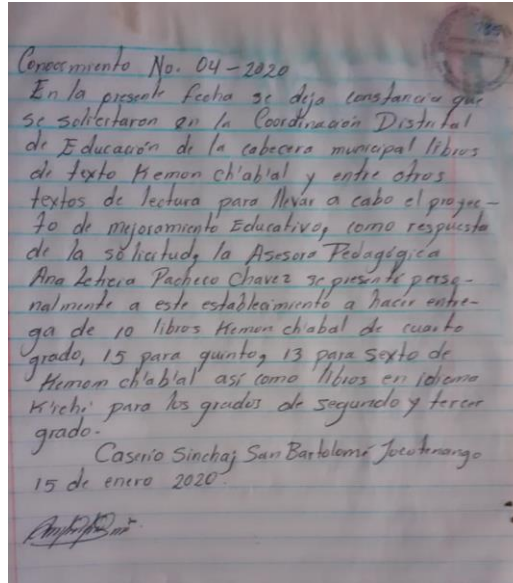 Conocimiento No. 04-2020
En la presente fecha se deja constancia que
se solicitaron en la Coordinación Distrital
de Educación de la cabecera municipal libros
de texto Kemon ch'ab'al y entre otros
textos de lectura para llevar a cabo el proyec-
to de mejoramiento Educativo, como respuesta
de la solicitud, la Asesora Pedagógica
Ana Leticia Pacheco Chavez se presentó perso-
nalmente a este establecimiento a hacer entre-
ga de 10 libros Kemon ch'abal de cuarto
grado, 15 para quinto, 13 para sexto de
Kemom ch'ab'al así como libros en idioma
K'iche' para los grados de segundo y tercer
grado.
Caserio Sinchaj San Bartolomé Jocotenango
15 de enero 2020.